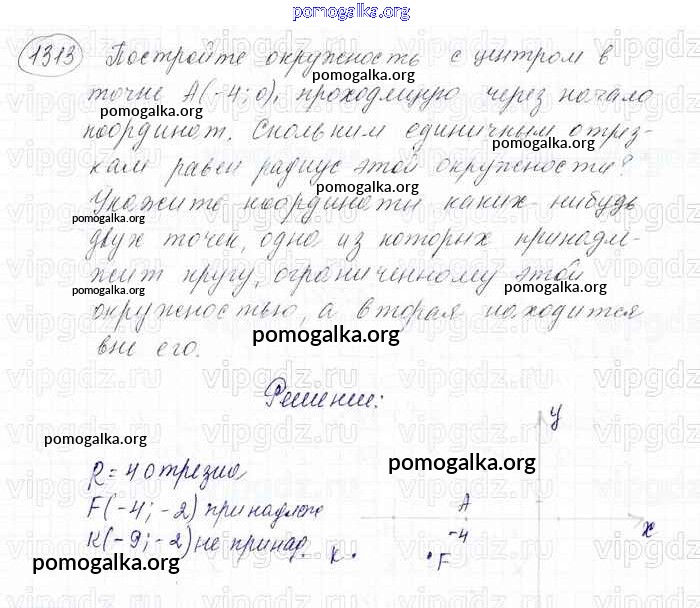 pomogalka.org
1313 Постройте окружность с центром в
pomogalka.org
точке А(-4; 0), проходящую через начало
pomogalka.org
координат. Скольким единичным отрез-
pomogalka.org
кам равен радиус этой окружности?
pomogalka.org
Укажите координаты каких-нибудь
pomogalka.org
двух точек, одна из которых принадле-
жит кругу, ограниченному этой
pomogalka.org pomogalka.org
окружностью, а вторая находится
pomogalka.org
вне его.
Решение:
y
pomogalka.org
pomogalka.org
R = 4 отрезка
F(-4; -2) принадлеж
A
pomogalka.org
-4 x
K(-9; -2) не принад.
K F
pomogalka.org
pomogalka.org
vipgdz.ru